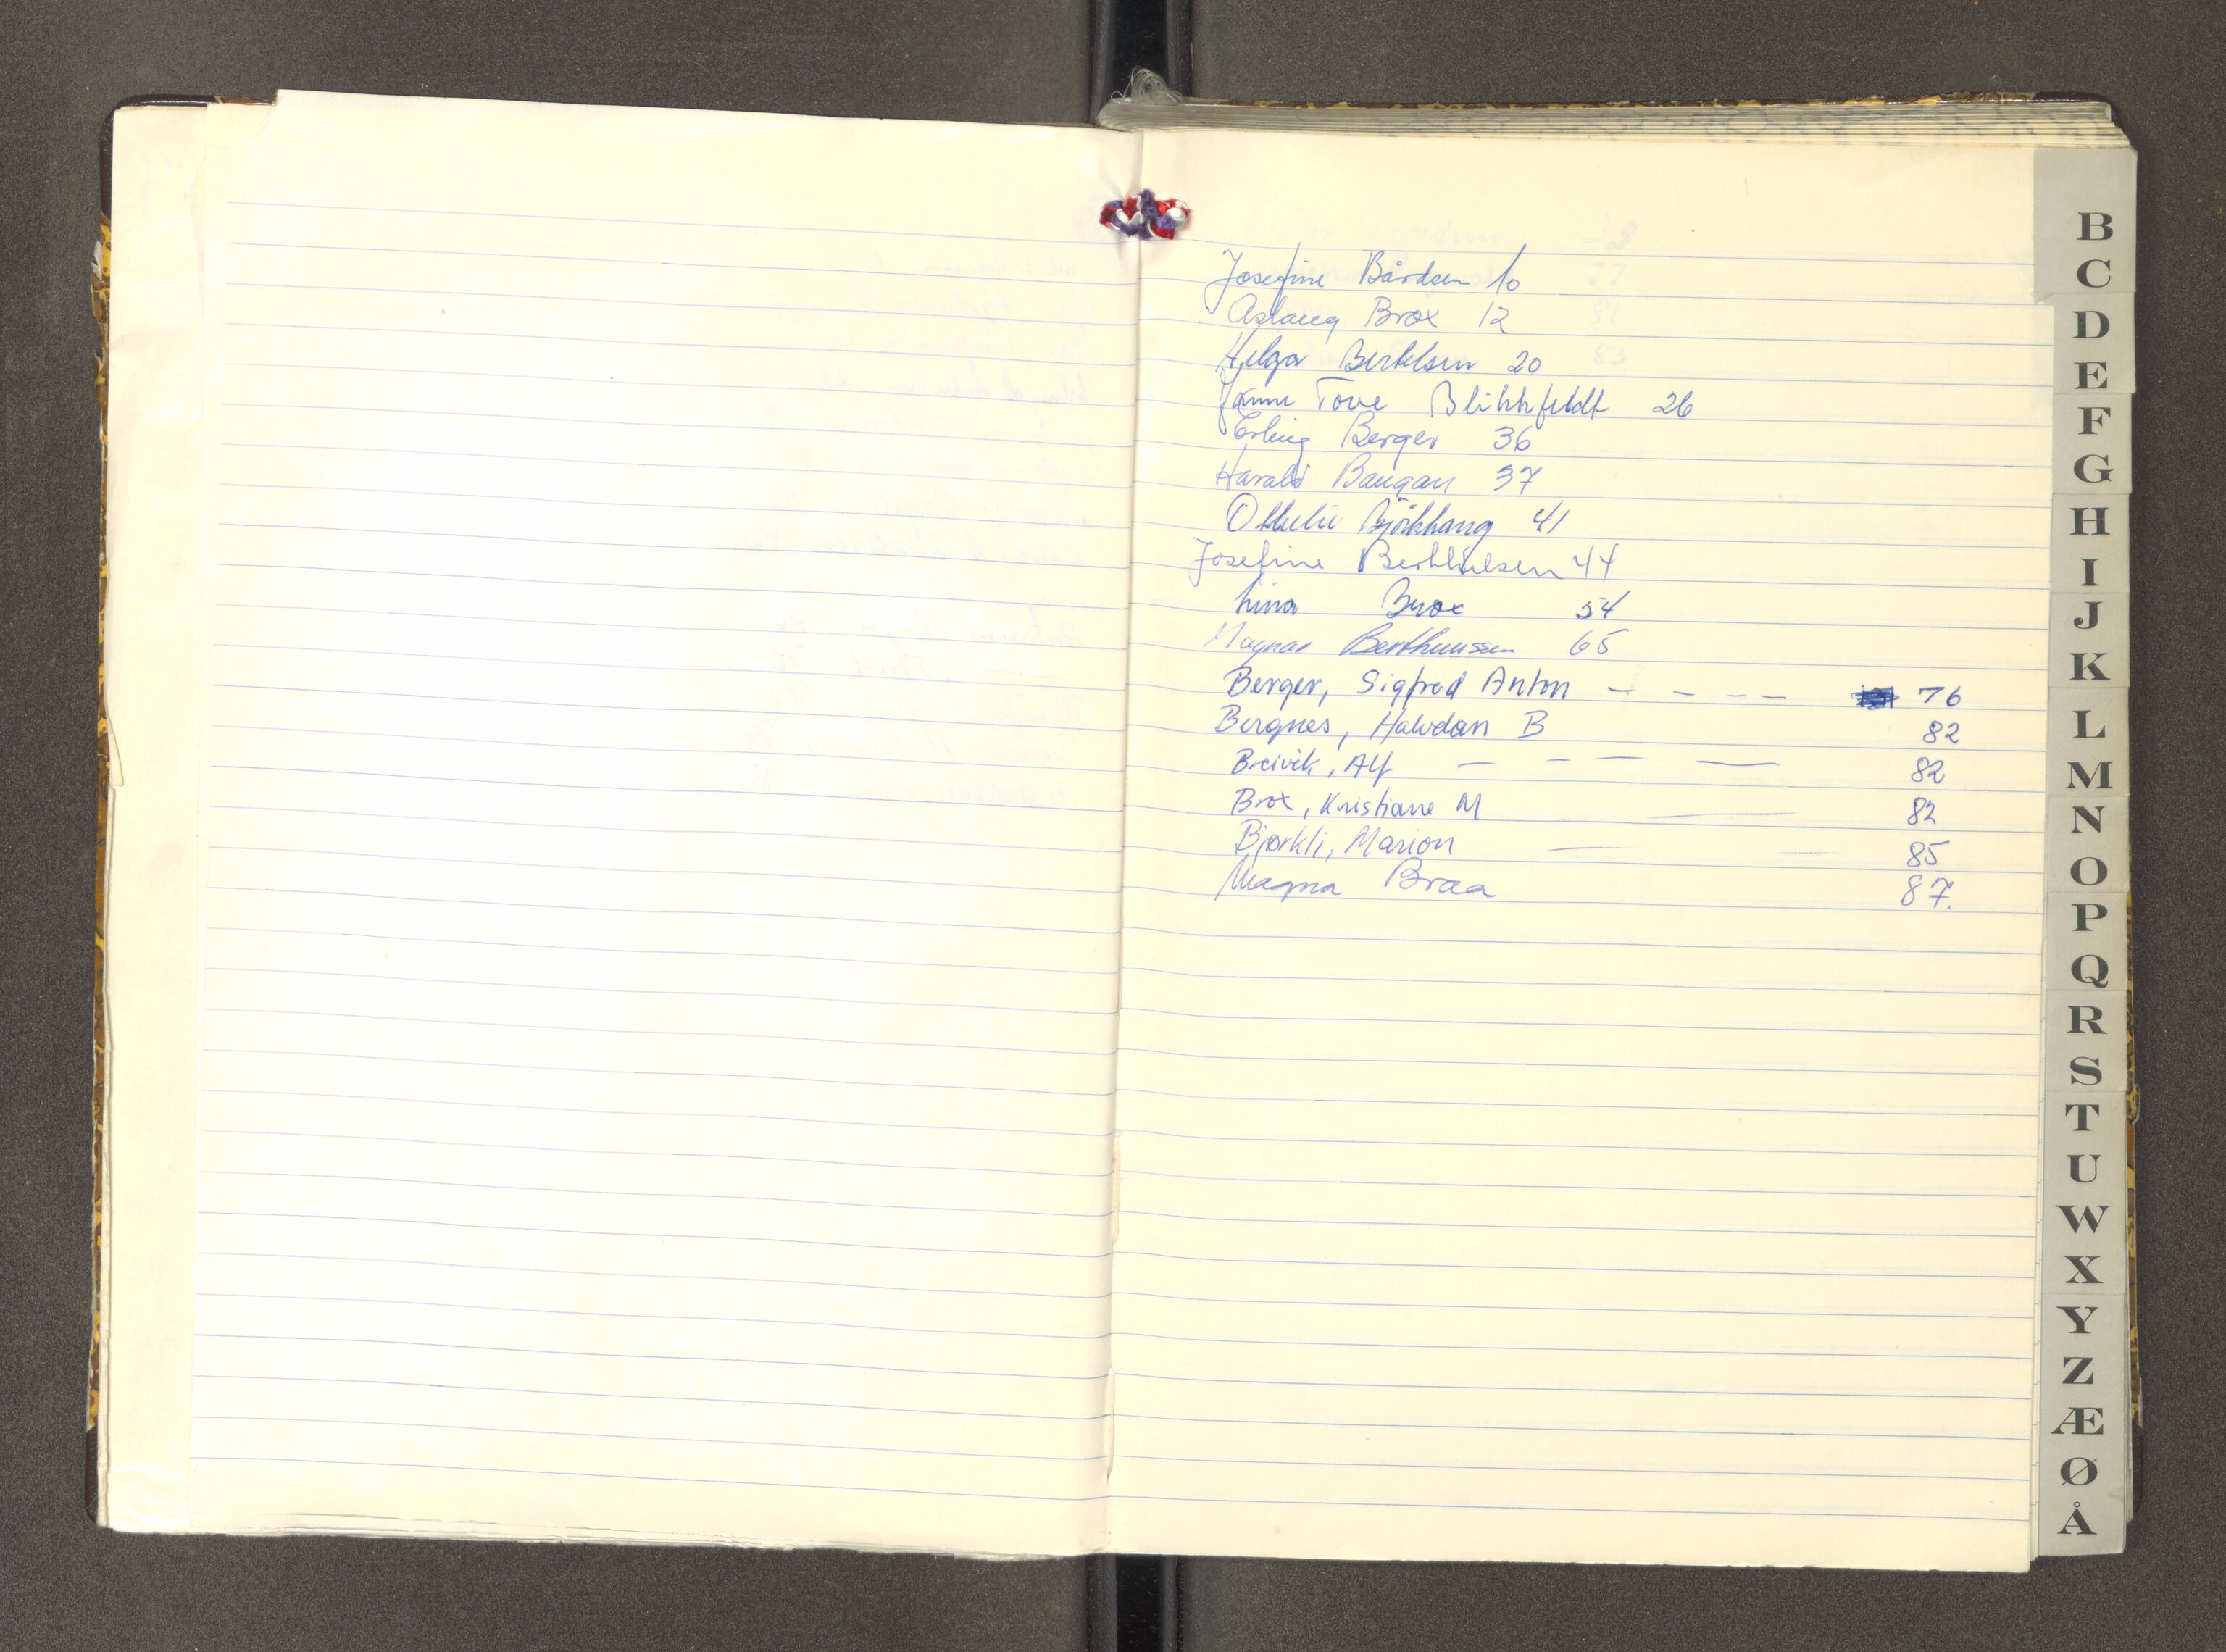 Josefine Bårdsen 10
Aslaug Brox 12
Helga Bertelsen 20
Janne Tove Blikkfeldt 26
Erling Berger 36
Harald Baugan 37
Othelie Bjökhaug 41
Josefine Berthelsen 44
Lina Brox 54
Magnar Berthunssen 65
Berger, Sigfred Anton - - - - 76
Bergnes, Halvdan B 82
Breivik, Alf - - - - 82
Brox, Kristiane M - 82
Bjørkli, Marion - - 85
Magna Braa 87.
B
C
D
E
F
G
H
I
J
K
L
M
N
O
P
Q
R
S
T
U
W
X
Y
Z
Æ
Ø
Å